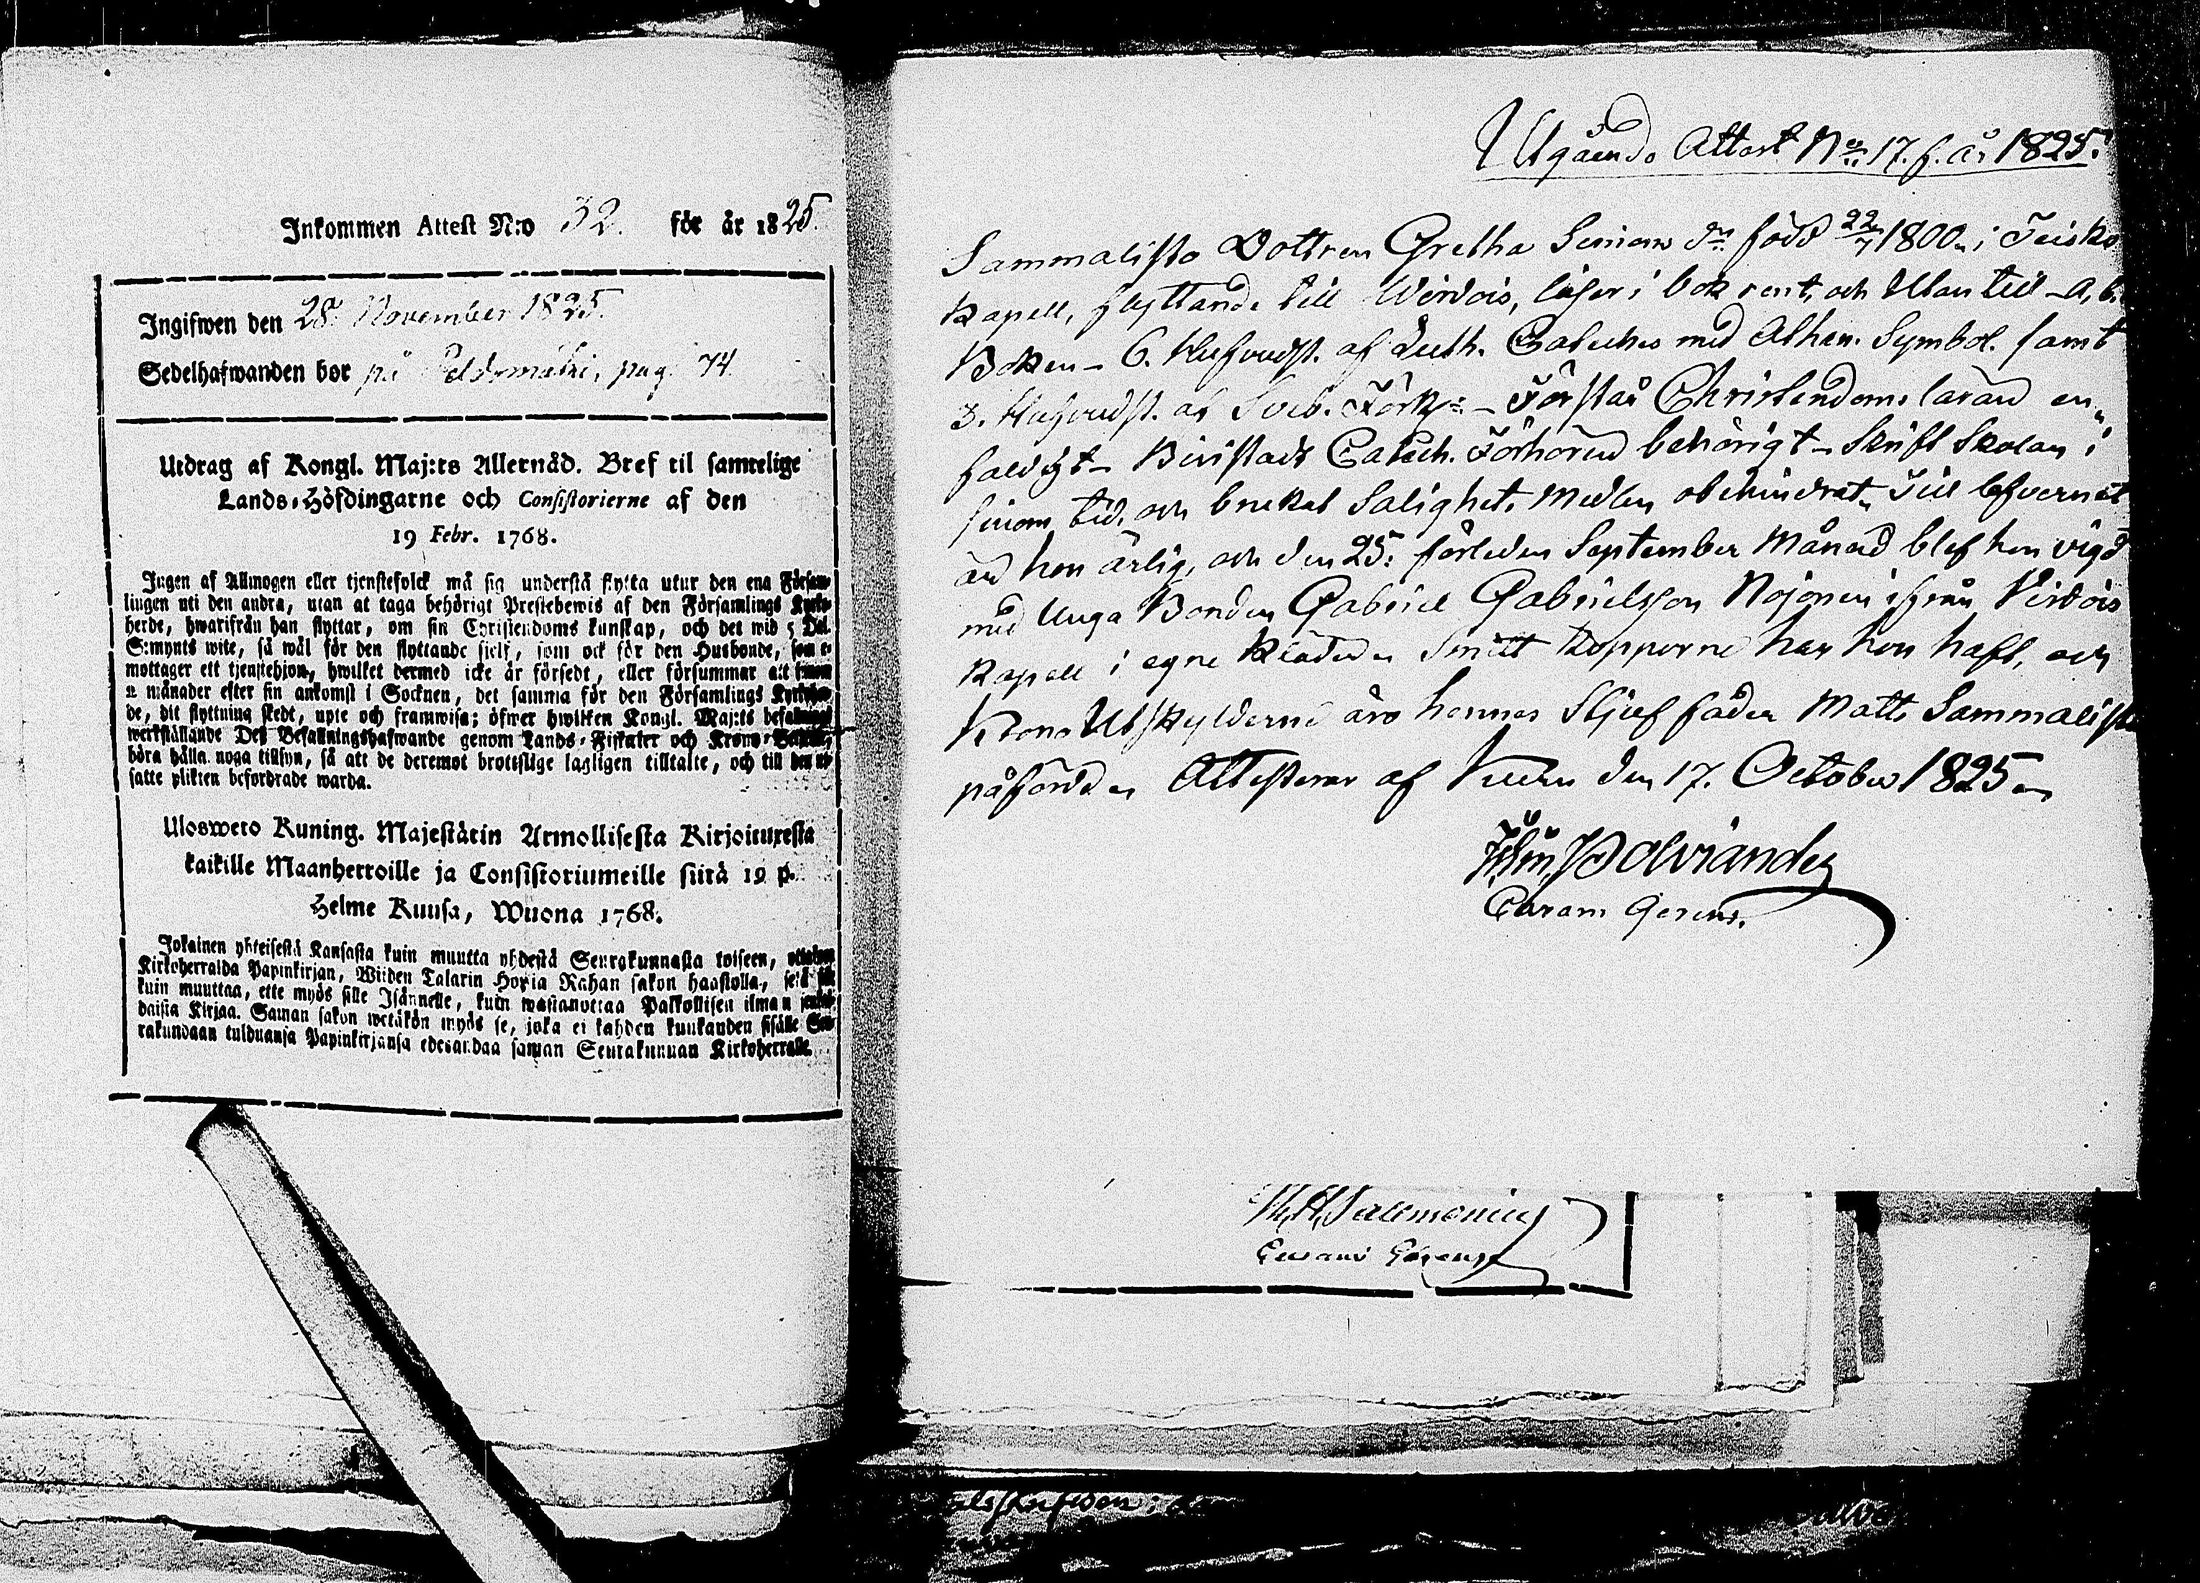 Inkommen Attest N:o 32. för år 1825.
Ingifwen den 28 November 1825.
Sedelhafwanden bor på Peldomäki, pag. 74.
Utdrag af Kongl. Maj:ts Allernåd. Bref til samtelige
Lands-Höfdingarne och Consistorierne af den
19 Febr. 1768.
Ingen af Allmogen eller tjenstefolck må sig understå flytta utur den ena Försam-
lingen uti den andra, utan at taga behörigt Prestebewis af den Församlings Kyrko-
herde, hwarifrån han flyttar, om sin Christendoms kunskap, och det wid 5 Dal.
S:mynts wite, så wäl för den flyttande sielf, som ock för den Husbonde, som e-
mottager ett tjenstehjon, hwilket dermed icke är försedt, eller försummar att innom
2 månader efter sin ankomst i Socknen, det samma för den Församlings Kyrkoher-
de, dit flyttning skedt, upte och framwisa; öfwer hwilken Kongl. Maj:ts befallnings
werkställande Des Befallningshafwande genom Lands-Fiskaler och Krono-Betjente,
böra hålla noga tillsyn, så att de deremot brottslige lagligen tilltalte, och till den ut-
satte plikten befordrade warda.
Ulosweto Kuning. Majestätin Armollisesta Kirjoituxesta
kaikille Maanherroille ja Consistoriumeille siitä 19 p.
Helme Kuusa, Wuona 1768.
Jokainen yhteisestä Kansasta kuin muutta yhdestä Seurakunnasta toiseen, ottakon
Kirkoherralda Papinkirjan, Wiiden Talarin Hopia Rahan sakon haastolla, sekä se
kuin muuttaa, ette myös sille Isännelle, kuin wastanottaa Palkollisen ilman sencal-
daista Kirjaa. Saman sakon wetäkön myös se, joka ei kahden kuukauden sisälle Seu-
rakundaan tulduansa Papinkirjansa edesandaa saman Seurakunnan Kirkoherralle.
Utgående Attest No 17. f. år 1825.
Sammalisto Dottren Gretha Simons dr. född 22/7 1800 i Teisko
Kapell, flyttande till Wirdois, läser i bok rent, och utan till A, b,
Boken - 6. Hufvudst. af Luth. Cateches med Athan. Symbol. samt
3. Hufvudst. af Sveb. Förkl: - Förstår Christendoms läran en-
faldigt - Bevistadt Catech. Förhören behörigt - Skrift Skolan i
sinom tid, och brukat Salighets Medlen obehindrat. Till lefvernet
är hon ärlig, och den 25. förleden September Månad blef hon vigd
med Unga Bonden Gabriel Gabrielsson Nojonen ifrån Virdois
Kapell i egne kläder. Smitt kopporne har hon haft, och
Krono Utskylderne äro hennes Stjuf fader Matts Sammalisto
påförde. Attesterar af Kuru den 17. October 1825.
Joh:n Polviander
Curam Gerens.
Salmenius
Curam Gerens